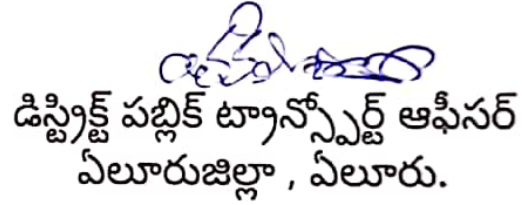 డిస్ట్రిక్ట్ పబ్లిక్ ట్రాన్స్పోర్ట్ ఆఫీసర్
ఏలూరుజిల్లా , ఏలూరు.